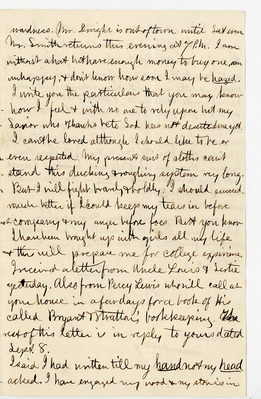 wardness. Mr. Enright is out of town until Sat even
Mr. Smith returns this evening at 7 P.M. I am
without a hat not have enough money to buy one, am
unhappy, & don't know how soon I may be hazed.
I write you the particulars that you may know
how I feel & with no one to rely upon but my
Savior who thanks be to God has not deserted me yet.
I can't be loved although I should like to be or
even respected. My present suit of cloths can't
stand this ducking & roughing system very long.
But I will fight bravely & boldly. I should succeed
much better if I could keep my tears in before
company & my anger before foes. But you know
I have been brought up with girls all my life
& this will prepare me for college experience.
I received a letter from Uncle Louis & Leslie
yesterday. Also from Percy Lewis who will call at
your house in a few days for a book of his
called Bryant & Stratton's bookkeeping. The
rest of this letter is in reply to yours dated
Sept. 8.
I said I had written till my hand not my head
acked. I have engaged my wood & my stove is in